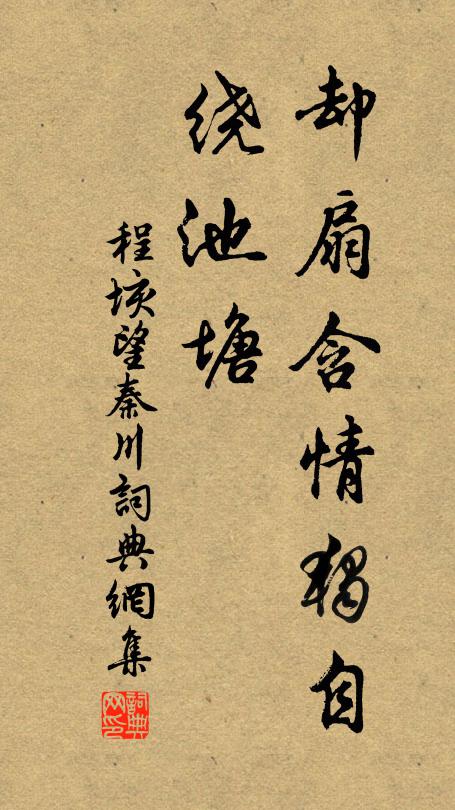 却扇含情獨自
绕池塘
程垓望秦川詞典網集
詞典网印